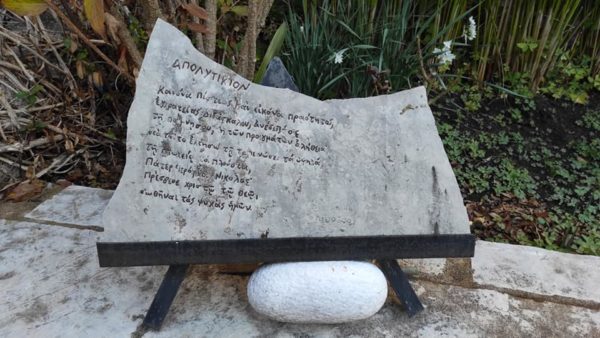 ΑΠΟΛΥΤΙΚΙΟΝ
Κανόνα Πίστεως καί εἰκόνα πραότητος,
Ἐγκρατείας Διδάσκαλον, Ἀνέδειξέ σε
τῇ ποίμνῃ σου, ἡ τῶν πραγμάτων ἀλήθεια
διά τοῦτο ἐκτήσω τῇ ταπεινώσει τά ὑψηλά
τῇ πτωχείᾳ τά πλούσια,
Πάτερ Ἱεράρχα Νικόλαε
Πρέσβευε Χριστῷ τῷ Θεῷ,
σωθῆναι τάς ψυχάς ἡμῶν.